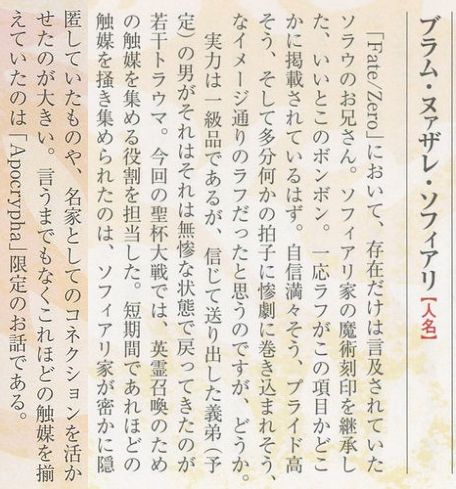 ブラム・ヌァザレ・ソフィアリ【人名】
「Fate/Zero」において、存在だけは言及されていた
ソラウのお兄さん。ソフィアリ家の魔術刻印を継承し
た、いいとこのボンボン。一応ラフがこの項目かどこ
かに掲載されているはず。自信満々そう、プライド高
そう、そして多分何かの拍子に惨劇に巻き込まれそう、
なイメージ通りのラフだったと思うのですが、どうか。
実力は一級品であるが、信じて送り出した義弟（予
定）の男がそれはそれは無惨な状態で戻ってきたのが
若干トラウマ。今回の聖杯大戦では、英霊召喚のため
の触媒を集める役割を担当した。短期間であれほどの
触媒を掻き集められたのは、ソフィアリ家が密かに隠
匿していたものや、名家としてのコネクションを活か
せたのが大きい。言うまでもなくこれほどの触媒を揃
えていたのは「Apocrypha」限定のお話である。